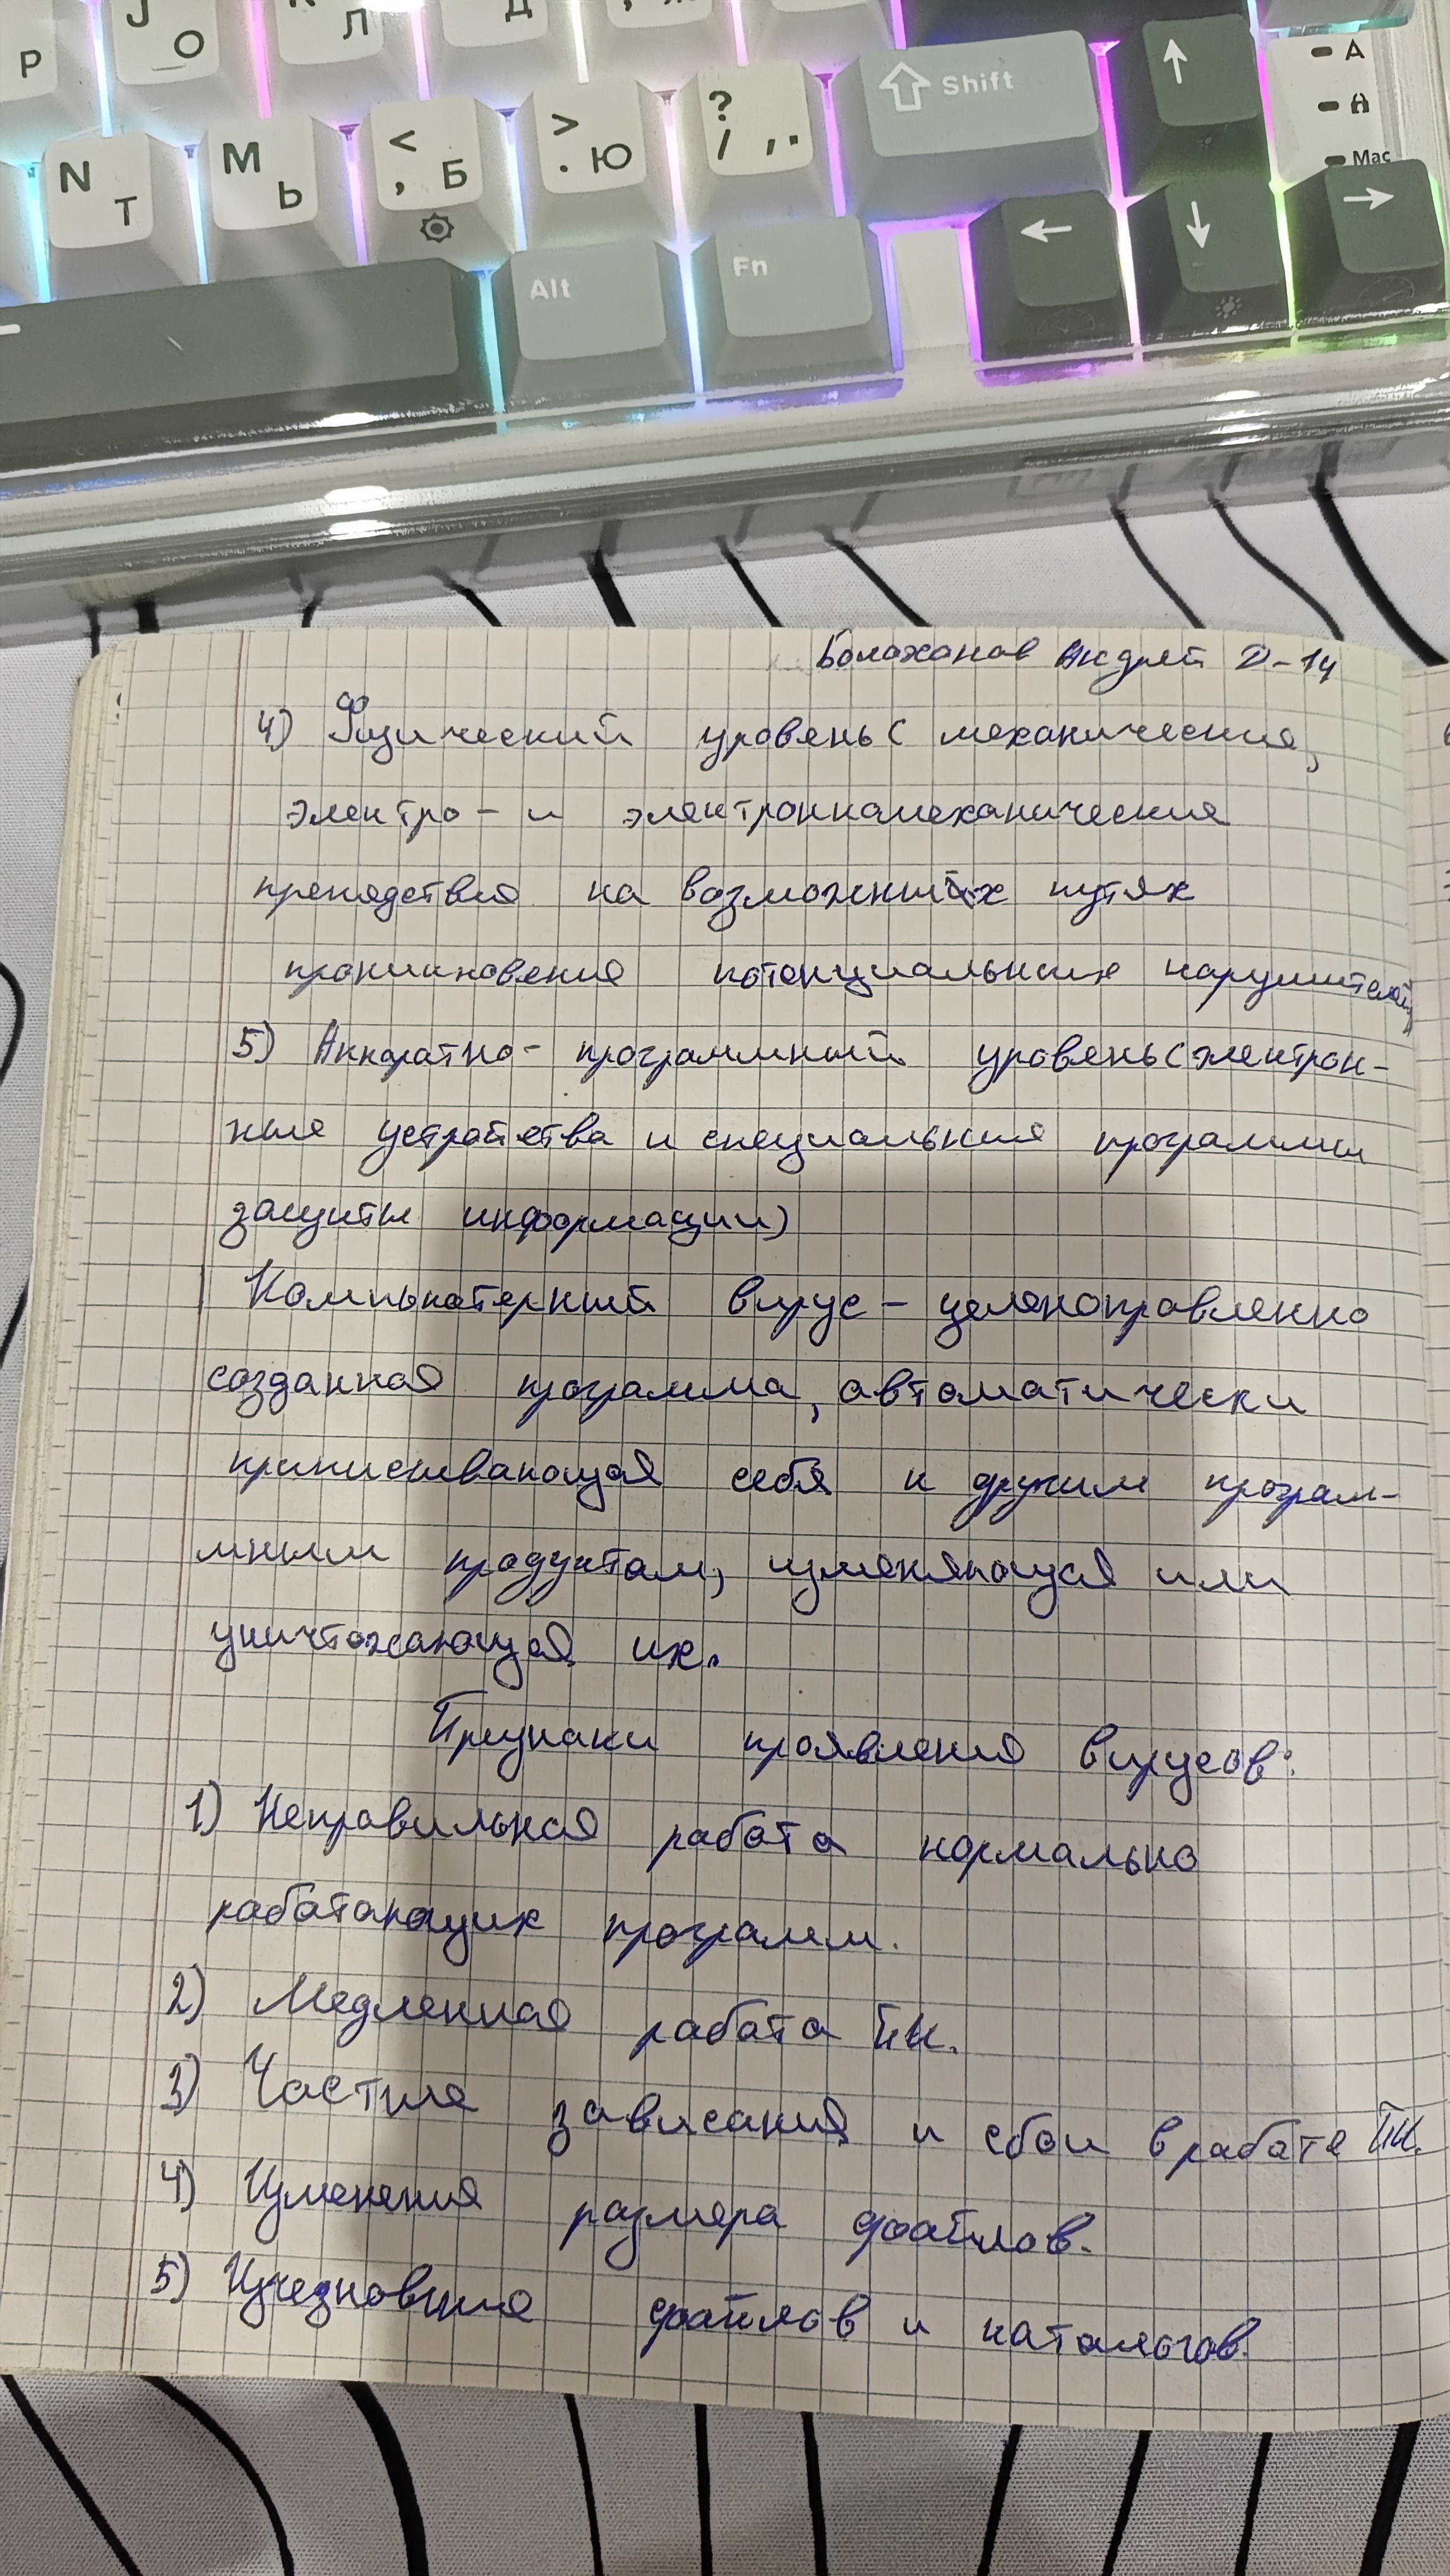 J О Л Д
Р
N Т M Ь < , Б > . Ю ? / , . Shift ↑ A
Mac
Alt Fn ← ↓ →
Болаханов Андрей D-14
4) Физический уровень( механические,
электро- и электронномеханические
препядствия на возможных путях
проникновения потенциальных нарушителей)
5) Аппаратно- программный уровень(электрон-
ные устройства и специальные программы
защиты информации)
Компьютерный вирус - целеноправленно
созданная программа, автоматически
приписывающая себя к другим програм-
мным продуктам, изменяющая или
уничтожающая их.
Признаки проявления вирусов:
1) Неправильная работа нормально
работающих программ.
2) Медленная работа ПК.
3) Частые зависания и сбои в работе ПК.
4) Изменения размера файлов.
5) Изчезновние файлов и каталогов.